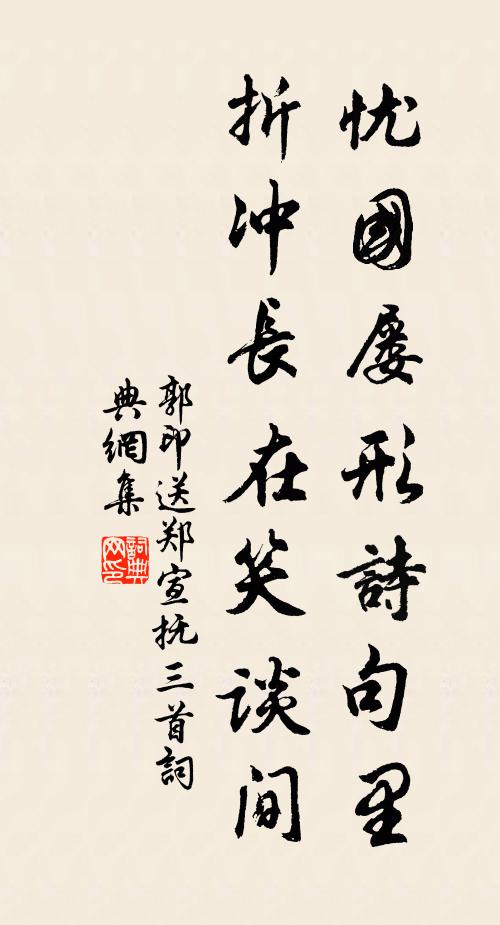 忧國屡形詩句里
折冲長在笑谈间
郭印送郑宣抚三首詞
典網集
詞典网印